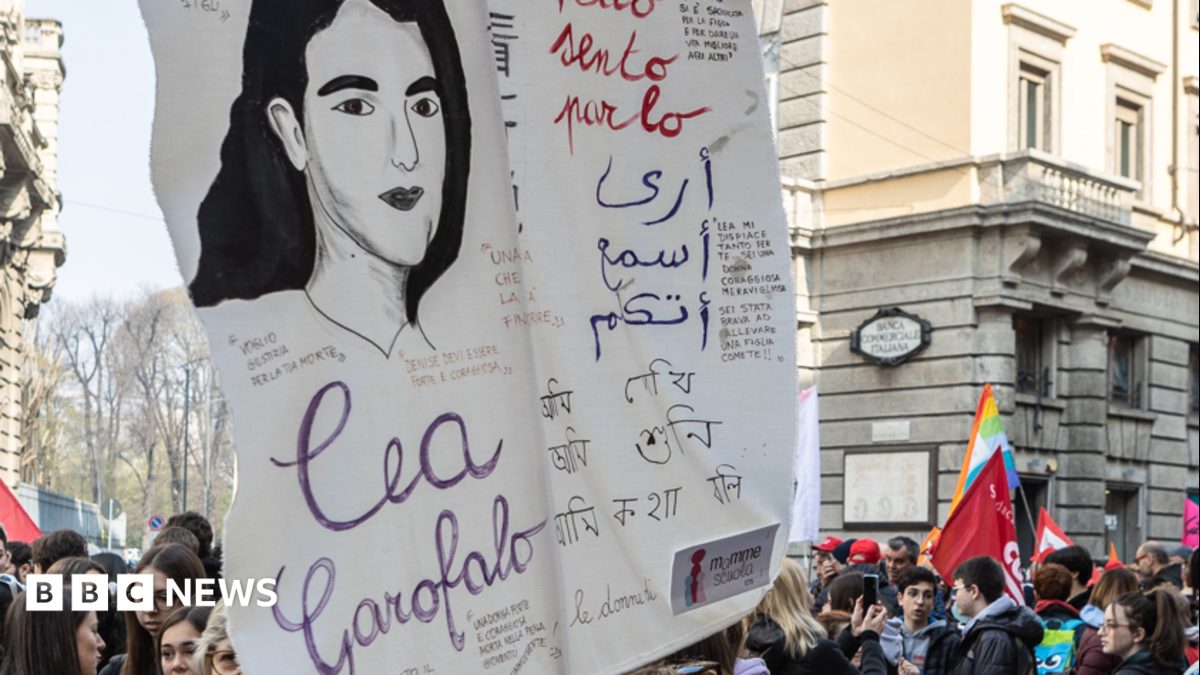 FIGLI»
«VOGLIO
GIUSTIZIA
PER LA TUA MORTE»
«DENISE DEVI ESSERE
FORTE E CORAGGIOSA»
Lea
Garofalo
"UNA
CHE
LA
FINIRE»
UNA DONNA FORTE
E CORAGGIOSA
MORTA NELLA PIENA
le donne di
SI È SACRIFICATA
PER LA FIGLIA
E PER DARE UNA
VITA MIGLIORE
AGLI ALTRI»
sento
parlo
أرى
أسمع
أتكلم
"LEA MI
DISPIACE
TANTO PER
TE. SEI UNA
DONNA
CORAGGIOSA
MERAVIGLIOSA
SEI STATA
BRAVA AD
ALLEVARE
UNA FIGLIA
COME TE!!
আমি দেখি
আমি শুনি
আমি কথা বলি
mamme
scuola
BANCA
COMMERCIALE
ITALIANA
BBC NEWS